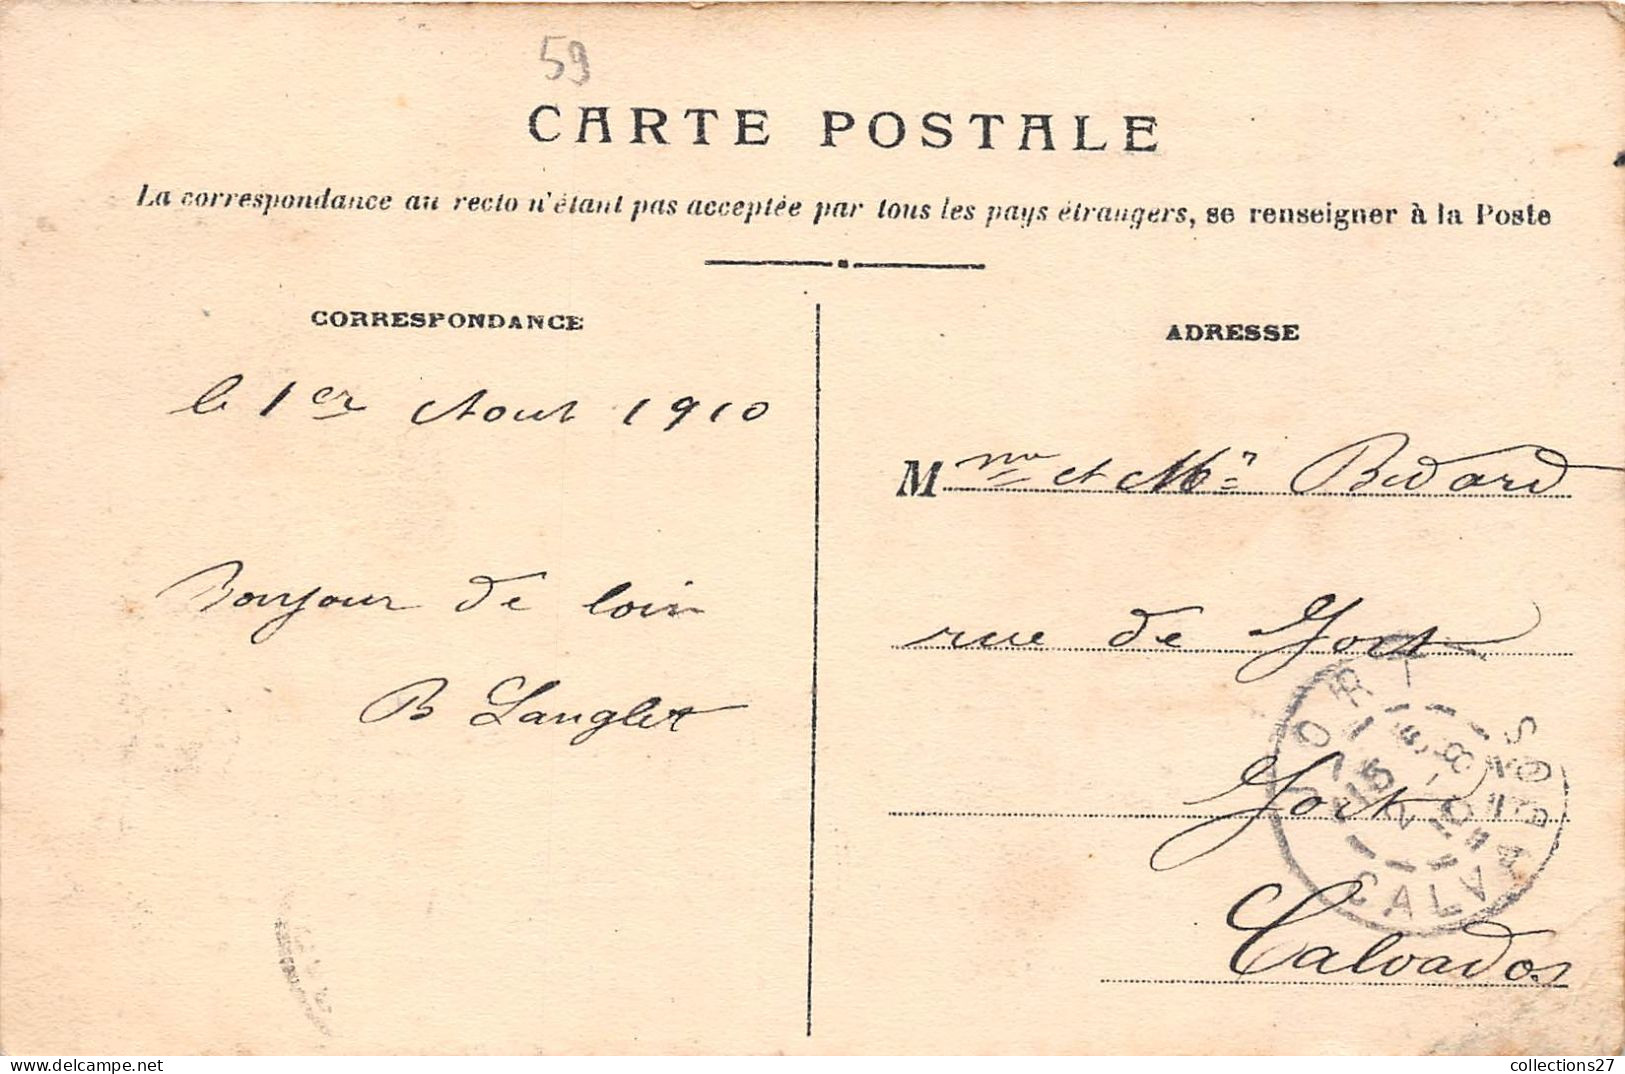 59
CARTE POSTALE
La correspondance au recto n'étant pas acceptée par tous les pays étrangers, se renseigner à la Poste
CORRESPONDANCE
le 1er Aout 1910
Bonjour de loin
B Langlet
ADRESSE
Mme et Mr Bidard
rue de Jort
Jort
Calvados
JORT
15
2-8
10
CALVADOS
collections27